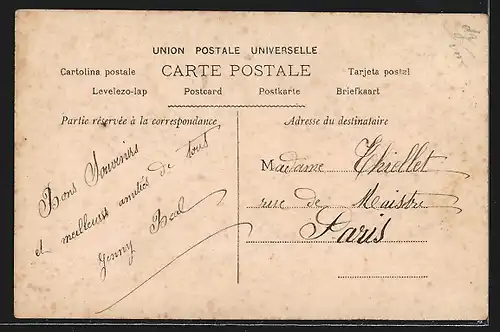 UNION POSTALE UNIVERSELLE
Cartolina postale CARTE POSTALE Tarjeta postal
Levelezo-lap Postcard Postkarte Briefkaart
Partie réservée à la correspondance
Adresse du destinataire
Bons Souvenirs
et meilleures amitiés de tout
Jenny
Madame Thiellet
rue de Maistre
Paris